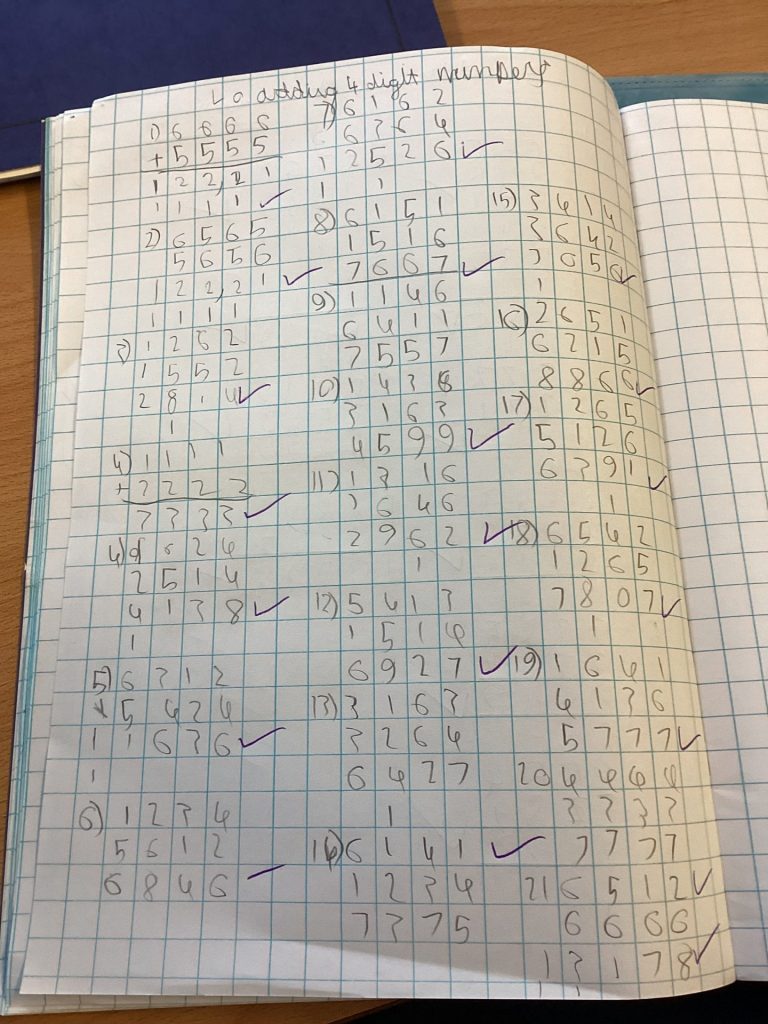 LO adding 4 digit number
1) 6 6 6 6
+ 5 5 5 5
1 2 2, 2 1
1 1 1 1
2) 6 5 6 5
5 6 5 6
1 2 2, 2 1
1 1 1 1
3) 1 2 6 2
1 5 5 2
2 8 1 4
1
4) 1 1 1 1
+ 2 2 2 2
3 3 3 3
6 2 4
2 5 1 4
4 1 3 8
1
5) 6 2 1 2
+ 5 4 2 4
1 1 6 3 6
1
6) 1 2 3 4
5 6 1 2
6 8 4 6
7) 6 1 6 2
6 3 6 4
1 2 5 2 6
1 1
8) 6 1 5 1
1 5 1 6
7 6 6 7
9) 1 1 4 6
6 4 1 1
7 5 5 7
10) 1 4 3 6
3 1 6 3
4 5 9 9
11) 1 3 1 6
1 6 4 6
2 9 6 2
1
12) 5 4 1 3
1 5 1 4
6 9 2 7
13) 3 1 6 3
3 2 6 4
6 4 2 7
1
14) 6 1 4 1
1 2 3 4
7 3 7 5
15) 3 4 1 4
3 6 4 2
7 0 5 6
1
16) 2 6 5 1
6 2 1 5
8 8 6 6
17) 1 2 6 5
5 1 2 6
6 3 9 1
1
18) 6 5 4 2
1 2 6 5
7 8 0 7
1
19) 1 6 4 1
4 1 3 6
5 7 7 7
20 4 4 4 4
3 3 3 3
7 7 7 7
21 6 5 1 2
6 6 6 6
1 3 1 7 8
1 1